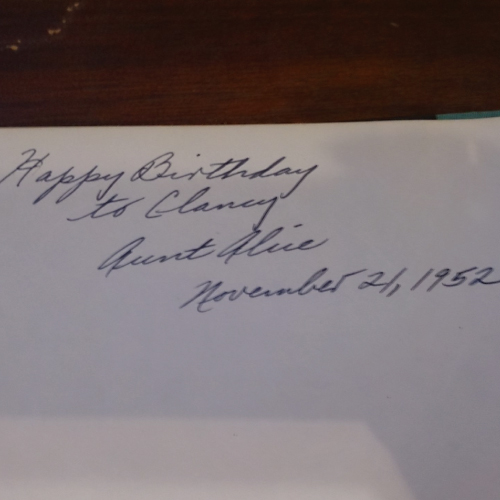 Happy Birthday
to Clancy
Aunt Alice
November 21, 1952